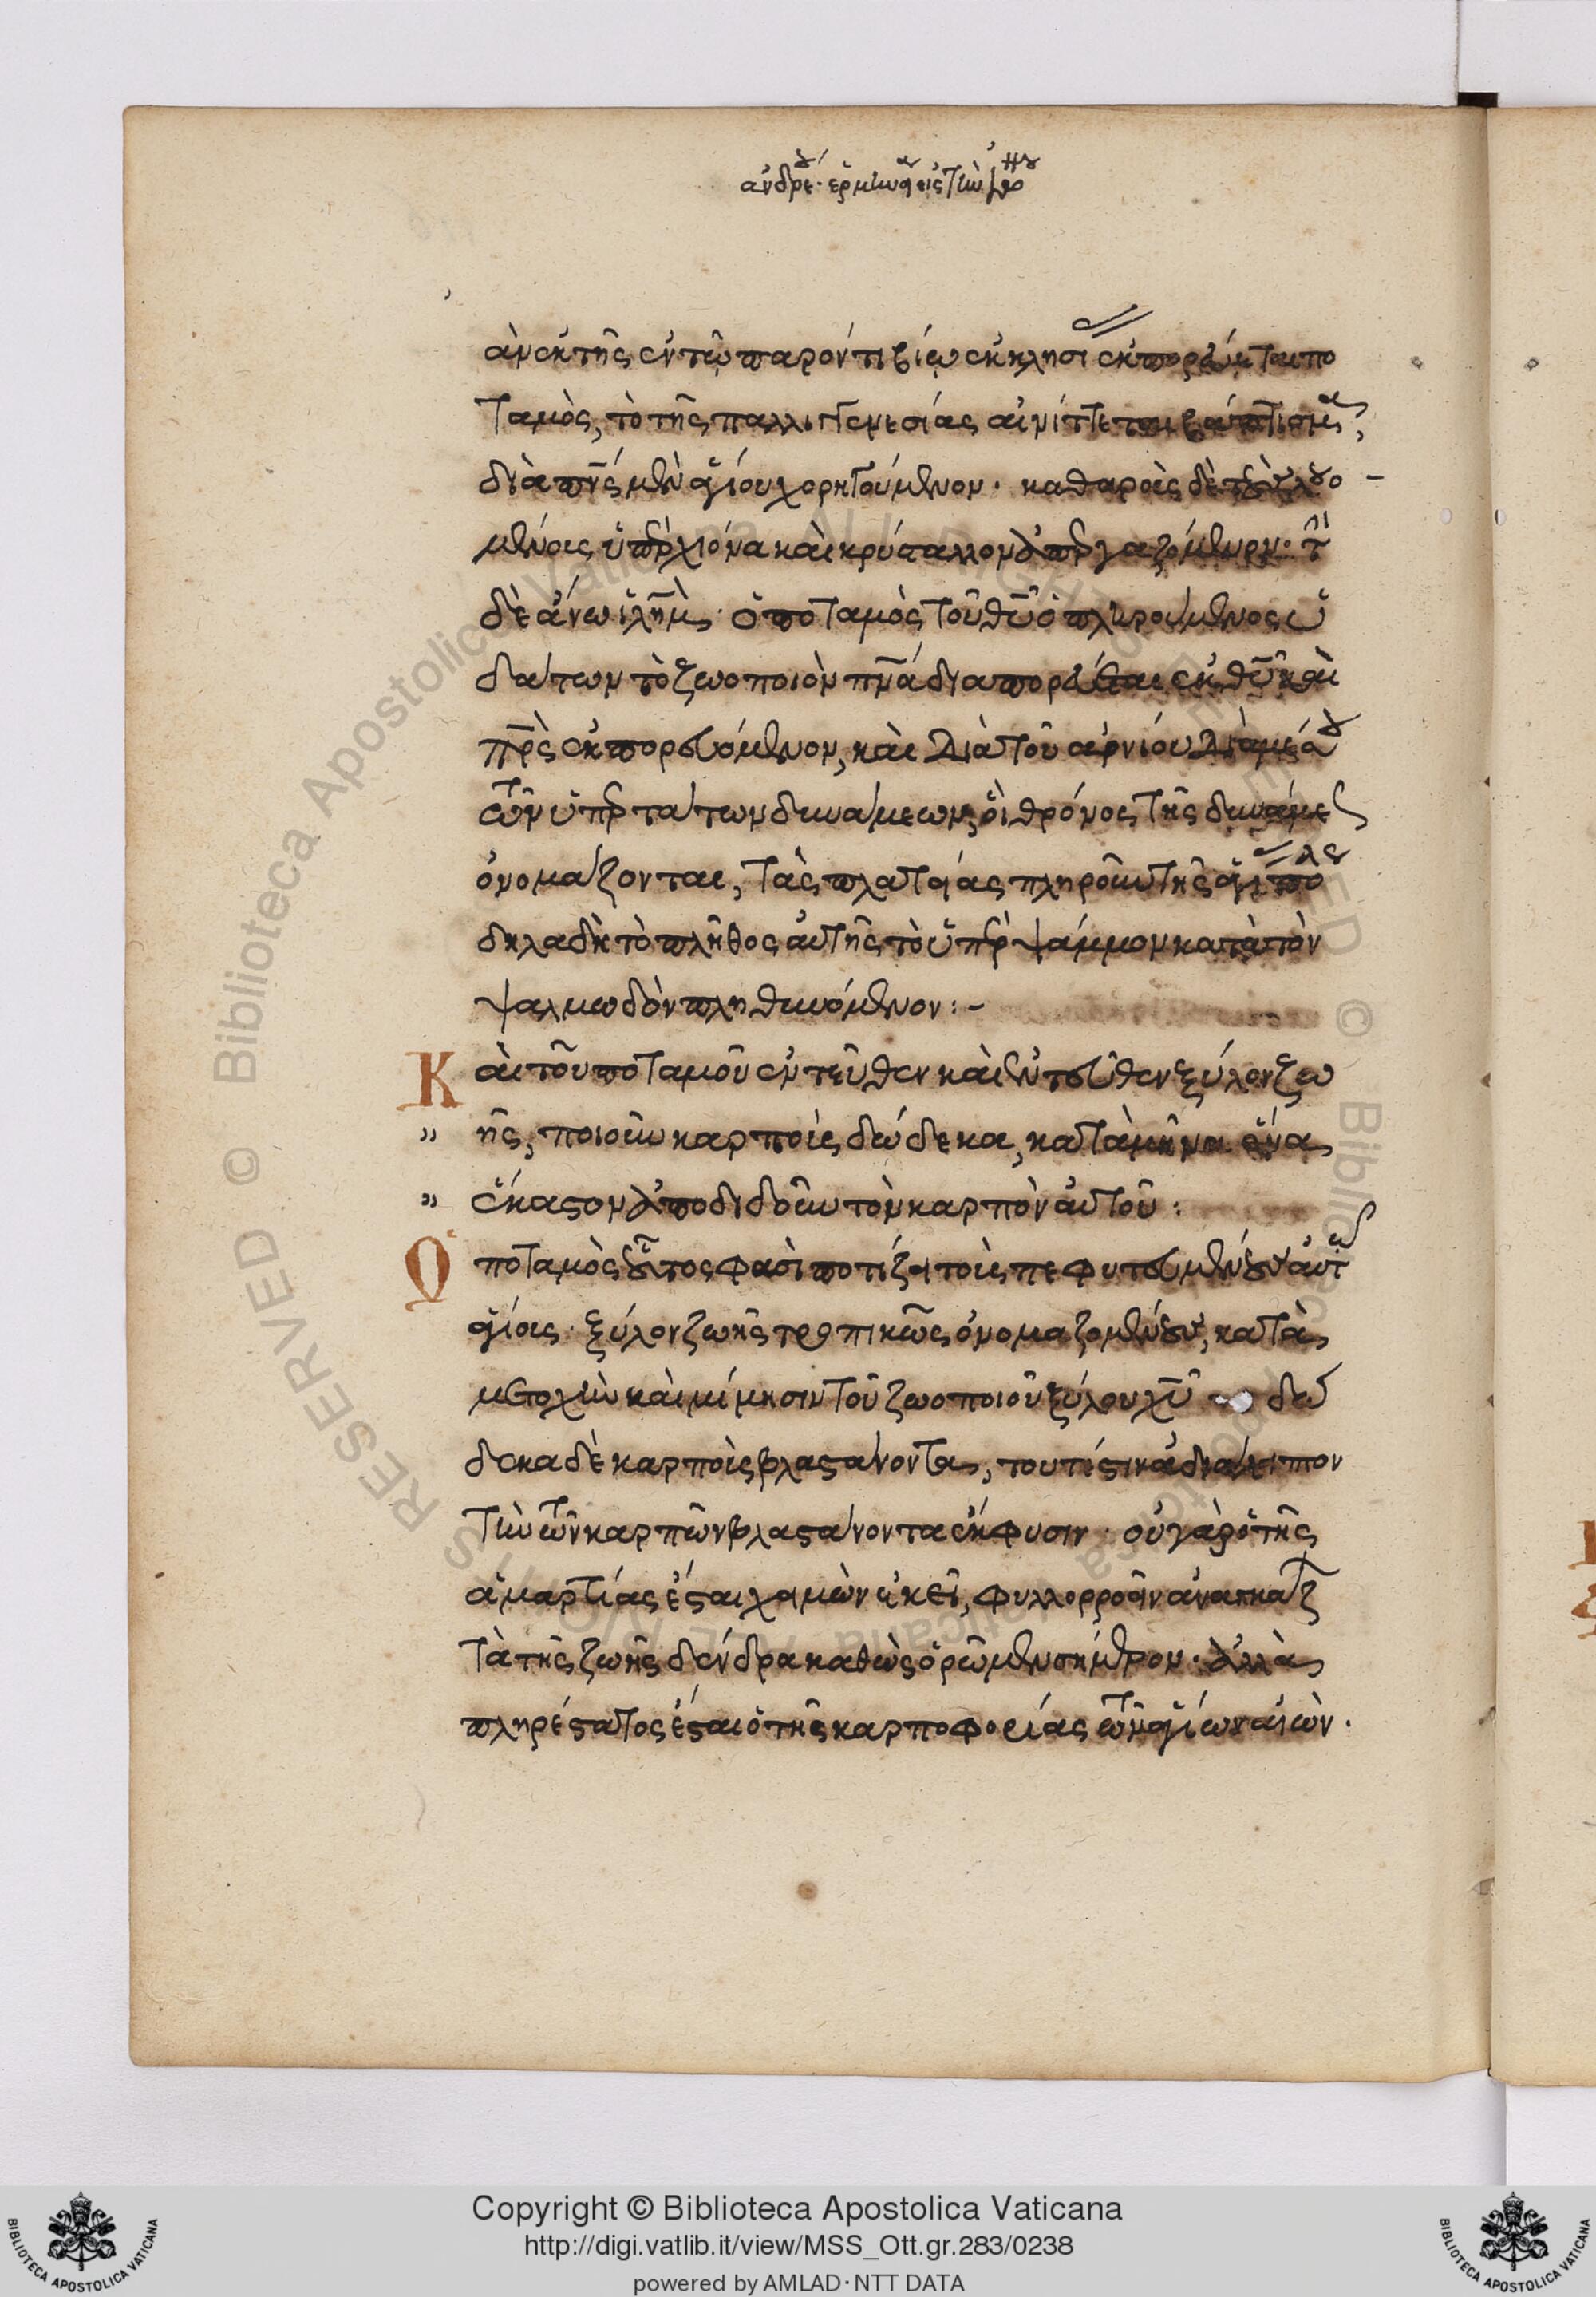 ἀνδρέου ἑρμηνεία εἰς τὴν
ἀν ἐκ τῆς ἐν τῷ παρόντι βίῳ ἐκκλησίας ἐκπορεύεται πο
ταμὸς, τὸ τῆς παλλιγγενεσίας αἰνίττεται βάπτισμα,
διὰ πνς μὲν ἁγίου χορηγούμενον. καθαροὺς δὲ τοὺς λουο
μένους ὑπὲρ χιόνα καὶ κρύσταλλον ἀπεργαζόμενον. τὴν
δὲ ἄνω ἱλημ ὁ ποταμὸς τοῦ θῦ ὁ πληρούμενος ὑ
δάτων τὸ ζωοποιὸν πνα διαπορεύεται ἐκ θῦ καὶ
πρς ἐκπορευόμενον, καὶ διὰ τοῦ ἀρνίου διὰ μέσου
τῶν ὑπερτάτων δυνάμεων, οἳ θρόνος τῆς δυνάμεως
ὀνομάζονται, τὰς πλατείας πληροῦν τῆς ἁγίας πόλεως
δηλαδὴ τὸ πλῆθος αὐτῆς τὸ ὑπὲρ ψάμμον κατὰ τὸν
ψαλμωδὸν πληθυνόμενον :-
Καὶ τοῦ ποταμοῦ ἐντεῦθεν καὶ ἐντεῦθεν ξύλον ζω
" ῆς, ποιοῦν καρποὺς δώδεκα, κατὰ μῆνα ἕνα
" ἕκαστον ἀποδιδοῦν τὸν καρπὸν αὐτοῦ :
Ὁ ποταμὸς οὗτος φασὶ ποτίζει τοὺς πεφυτευμένους ἐν αὐτῶ
ἁγίους ξύλον ζωῆς τροπικῶς ὀνομαζομένους, κατὰ
μετοχὴν καὶ μίμησιν τοῦ ζωοποιοῦ ξύλου χῦ δώ
δεκα δὲ καρποὺς βλαστάνοντας, τουτέστιν ἀδιάλειπτον
τὴν τῶν καρπῶν βλαστάνοντα ἔκφυσιν. οὐ γὰρ ὁ τῆς
ἁμαρτίας ἔσται χειμὼν ἐκεῖ, φυλλορροεῖν ἀναγκάζων
τὰ τῆς ζωῆς δένδρα καθὼς ὁρῶμεν σήμερον. ἀλλὰ
πληρέστατος ἔσται ὁ τῆς καρποφορίας τῶν ἁγίων αἰών.
Copyright © Biblioteca Apostolica Vaticana
http://digi.vatlib.it/view/MSS_Ott.gr.283/0238
powered by AMLAD·NTT DATA